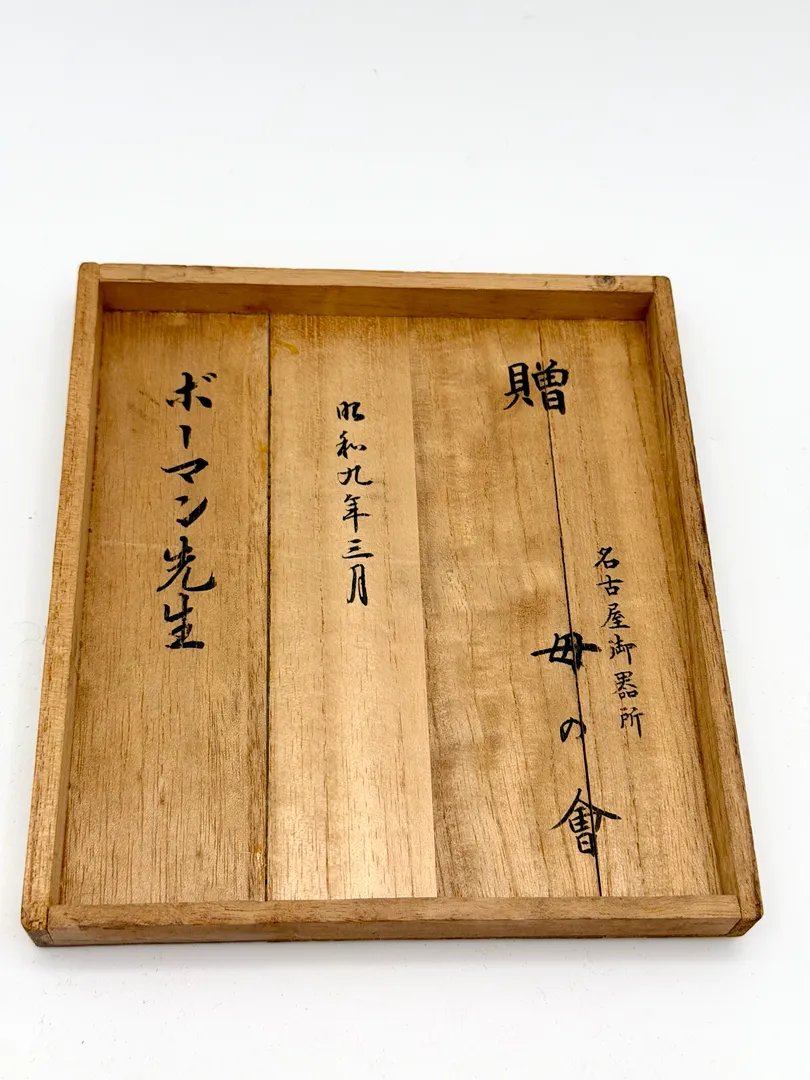 贈
名古屋御器所
母の會
昭和九年三月
ボーマン先生